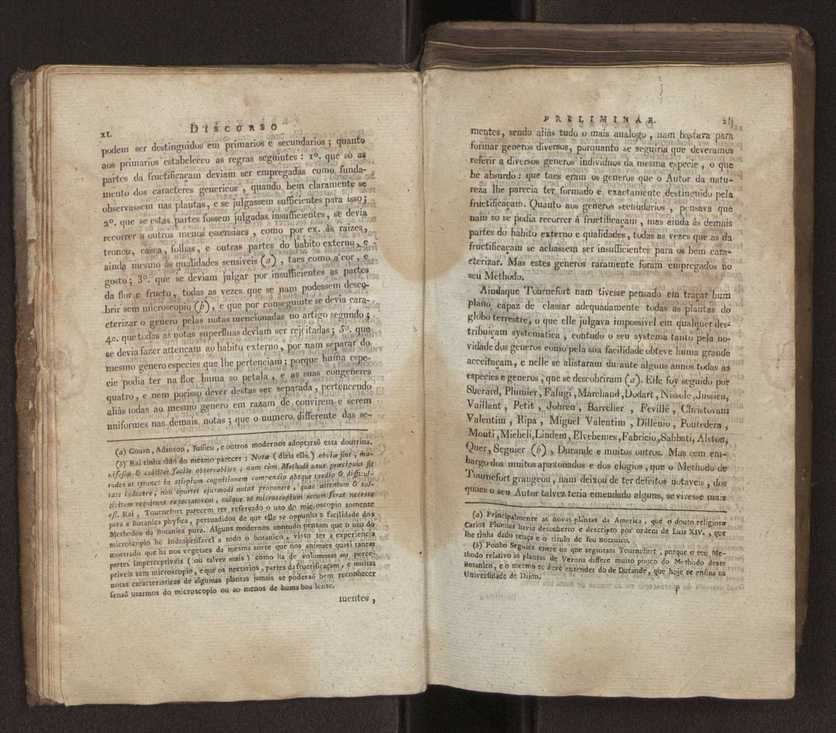 XL
DISCURSO
podem ser destinguidos em primarios e secundarios; quanto
aos primarios estabeleceo as regras seguintes: 1º. que só as
partes da fructificaçam deviam ser empregadas como funda-
mento dos caracteres genericos, quando bem claramente se
observassem nas plantas, e se julgassem sufficientes para isso;
2º. que se estas partes fossem julgadas insufficientes, se devia
recorrer a outros menos essenciaes, como por ex. ás raizes,
tronco, casca, folhas, e outras partes do habito externo, e
ainda mesmo ás qualidades sensiveis (a), taes como a cor, e
gosto; 3º. que se deviam julgar por insufficientes as partes
da flor e fructo, todas as vezes que se nam podessem desco-
brir sem microscopio (b), e que por conseguinte se devia cara-
cterizar o genero pelas notas mencionadas no artigo segundo;
4º. que todas as notas superfluas deviam ser rejeitadas; 5º. que
se devia fazer attencam ao habito externo, por nam separar do
mesmo genero especies que lhe pertenciam; porque huma espe-
cie podia ter na flor huma so petala, e as suas congeneres
quatro, e nem porisso dever destas ser separada, pertencendo
aliás todas ao mesmo genero em razam de convirem e serem
uniformes nas demais notas; que o numero differente das se-
(a) Gouan, Adanson, Jussieu, e outros modernos adoptaraõ esta doutrina.
(b) Rai tinha sido do mesmo parecer; Notæ (dizia elle)
para a botanica physica, persuadidos de que elle se oppunha a facilidade dos
Methodos da Botanica pura. Alguns modernos comtudo pensam que o uso do
microscopio he indispensavel a todo o botanico, visto ter a experiencia
mostrado que ha nos vegetaes da mesma sorte que nos animaes quasi tantas
partes imperceptiveis (ou talvez mais) como ha de volumosas ou perce-
ptiveis sem microscopio, e que os nectarios, partes da fructificaçam, e muitas
notas caracteristicas de algumas plantas jamais se poderaõ bem reconhecer
senaõ usarmos do microscopio ou ao menos de huma boa lente.
mentes,
PRELIMINAR.
mentes, sendo aliás tudo o mais analogo, nam bastava para
formar generos diversos, porquanto se seguiria que deveramos
referir a diversos generos individuos da mesma especie, o que
he absurdo: que taes eram os generos que o Autor da natu-
reza lhe parecia ter formado e exactamente destinguido pela
fructificaçam. Quanto aos generos secundarios, pensava que
nam so se podia recorrer á fructificaçam, mas ainda ás demais
partes do habito externo e qualidades, todas as vezes que as da
fructificaçam se achassem ser insufficientes para os bem cara-
cterizar. Mas estes generos raramente foram empregados no
seu Methodo.
Aindaque Tournefort nam tivesse pensado em traçar hum
plano capaz de classar adequadamente todas as plantas do
globo terrestre, o que elle julgava impossivel em qualquer des-
tribuiçam systematica, contudo o seu systema tanto pela no-
vidade dos generos como pela sua facilidade obteve huma grande
acceitaçam, e nelle se alistaram durante alguns annos todas as
especies e generos, que se descobriram (a). Elle foy seguido por
Sherard, Plumier, Falugi, Marchand, Dodart, Nissole, Jussieu,
Vaillant, Petit, Johren, Barrelier, Feville, Christovam
Valentim, Ripa, Miguel Valentim, Dillenio, Pontedera,
Monti, Micheli, Lindern, Elvebemes, Fabricio, Sabbati, Alston,
Quer, Seguier (b), Durande e muitos outros. Mas sem em-
bargo dos muitos apaixonados e dos elogios, que o Methodo de
Tournefort grangeou, nam deixou de ter defeitos notaveis, dos
quaes o seu Autor talvez teria emendado alguns, se vivesse mais
(a) Principalmente as novas plantas da America, que o douto religioso
Carlos Plumier havia descoberto e descripto por ordem de Luis XIV., que
lhe tinha dado tença e o titulo de seu botanico.
(b) Ponho Seguier entre os que seguiram Tournefort, porque o seu Me-
thodo relativo ás plantas de Verona differe muito pouco do Methodo deste
Botanico, e o mesmo se deve entender do de Durande, que hoje se ensina na
Universidade de Dijon.